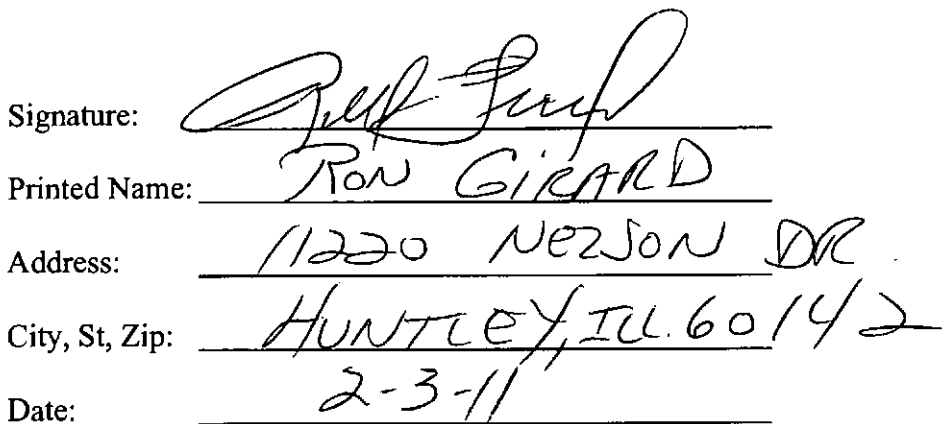 Signature:
Printed Name: RON GIRARD
Address: 11220 NELSON DR.
City, St, Zip: HUNTLEY, ILL. 60142
Date: 2-3-11